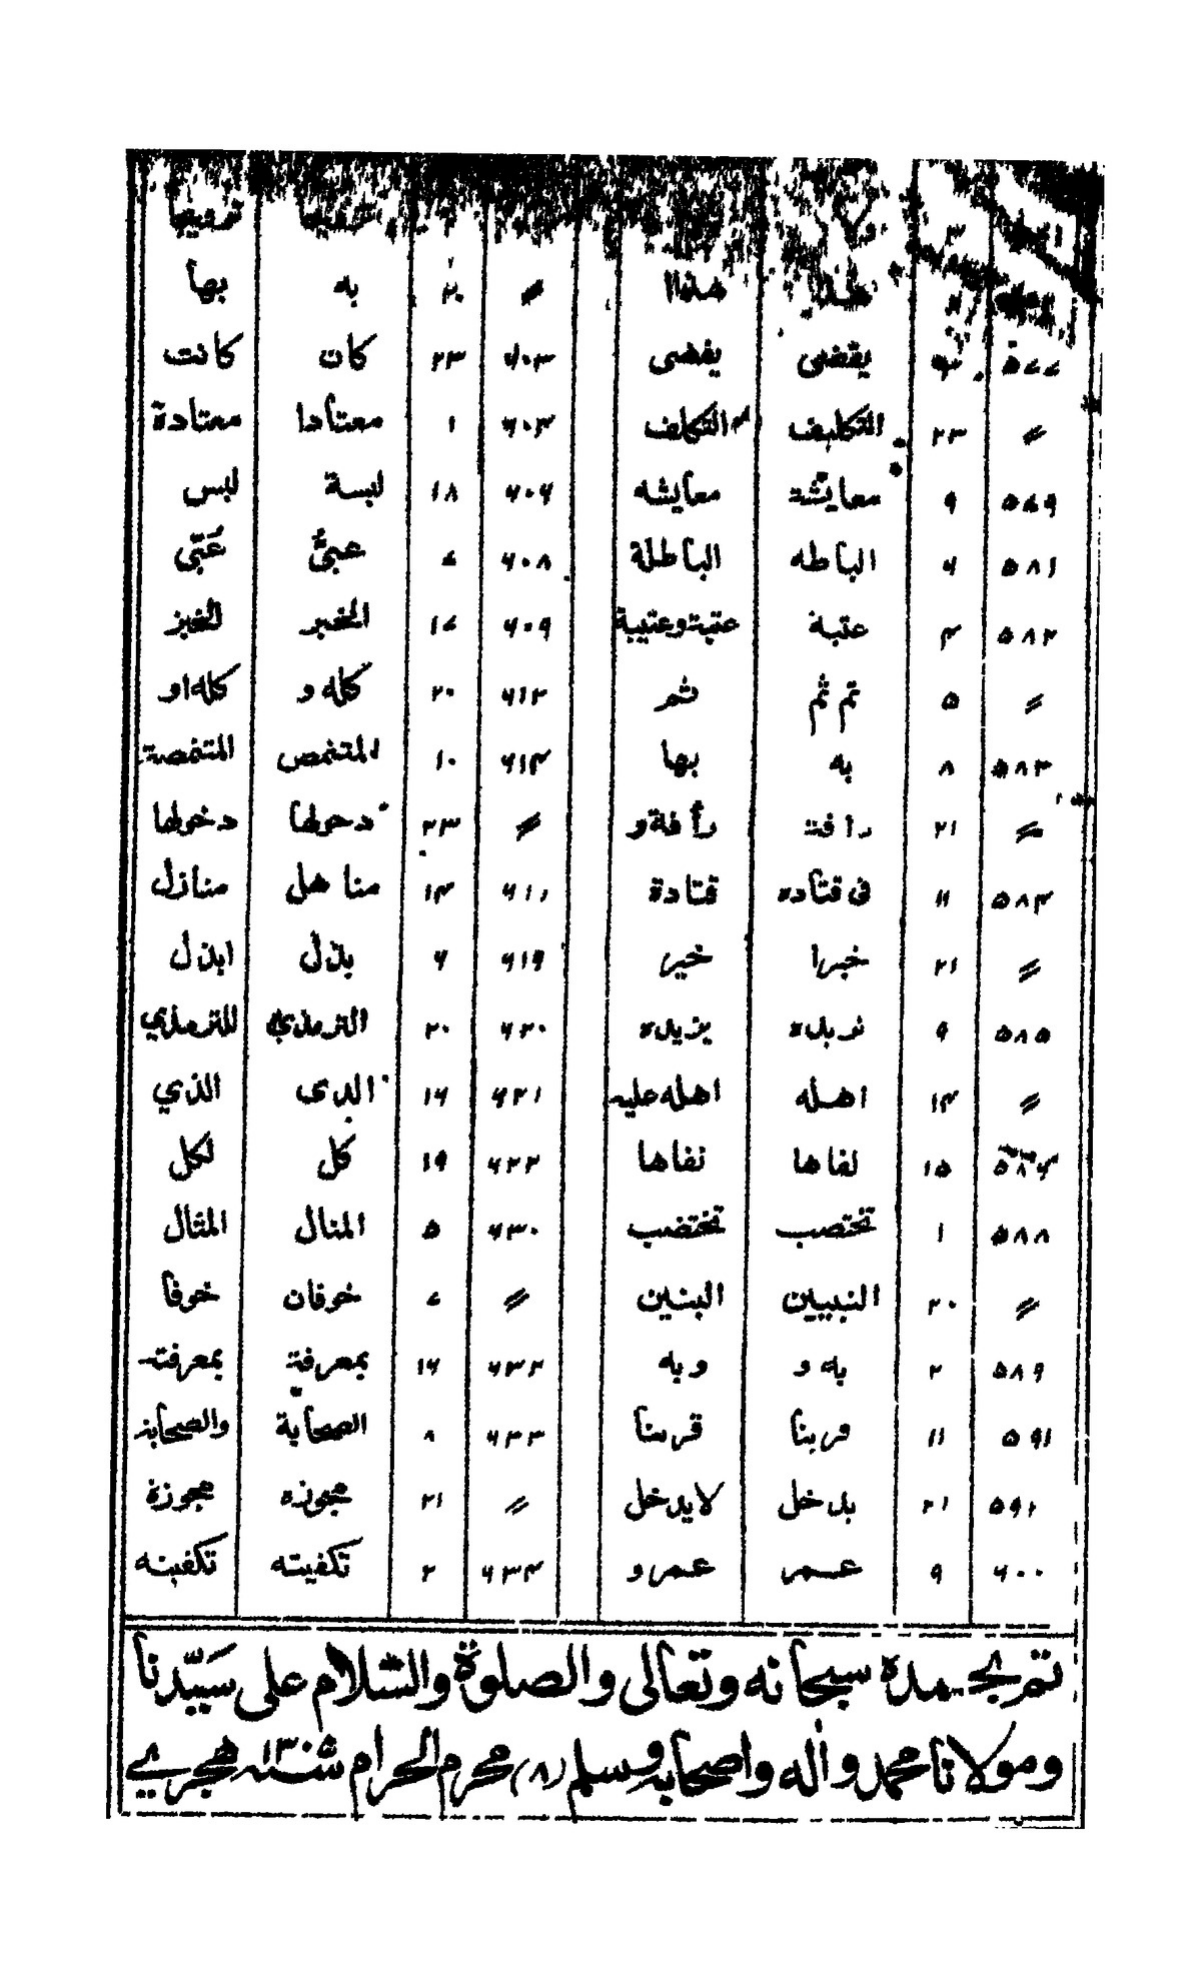 هذاا ۲۰ به بها
۵۷۷ يقضى يفضى ۶۰۳ ۲۳ كان كانت
〃 ۲۳ التكليف التكلف ۶۰۳ ۱ معتادا معتادة
۵۷۹ ۹ معايشة معايشه ۶۰۶ ۱۸ لبسة لبس
۵۸۱ ۶ الباطه الباطلة ۶۰۸ ۷ عبىٌّ عَبّى
۵۸۲ ۴ عتبة عتبة وعتيبة ۶۰۹ ۱۷ الخبر الخبز
〃 ۵ تم ثم ثم ۶۱۲ ۲۰ كله و كله او
۵۸۳ ۸ به بها ۶۱۴ ۱۰ المتنمص المتنمصة
〃 ۲۱ رافة رأفة و 〃 ۲۳ دحولها دخولها
۵۸۴ ۱۱ فى قتاده قتادة ۶۱۱ ۱۴ مناهل منازل
〃 ۲۱ خبرا خير ۶۱۹ ۶ بذل ابذل
۵۸۵ ۹ نربده يزيده ۶۲۰ ۲۰ الترمذي للترمذي
〃 ۱۴ اهله اهله عليه ۶۲۱ ۱۶ الدى الذي
۵۸۶ ۱۵ لفاها نفاها ۶۲۲ ۱۹ كل لكل
۵۸۸ ۱ تختصب تختضب ۶۳۰ ۵ المنال المثال
〃 ۲۰ النبيين البنين 〃 ۷ خوفان خوفا
۵۸۹ ۲ به و وبه ۶۳۲ ۱۶ بمعرفة بمعرفته
۵۹۱ ۱۱ قربنا ۶۳۳ ۸ الصحابة والصحابة
۵۹۲ ۲۱ بدخل لايدخل 〃 ۲۱ عجوزه عجوزة
۶۰۰ ۹ عمر عمرو ۶۳۴ ۲ تكفيته تكفينه
تم بحمده سبحانه وتعالى والصلوة والسّلام على سيّدنا
ومولانا محمد وأله واصحابه وسلم (۸) محرم الحرام سنة ۱۳۰۵ هجري